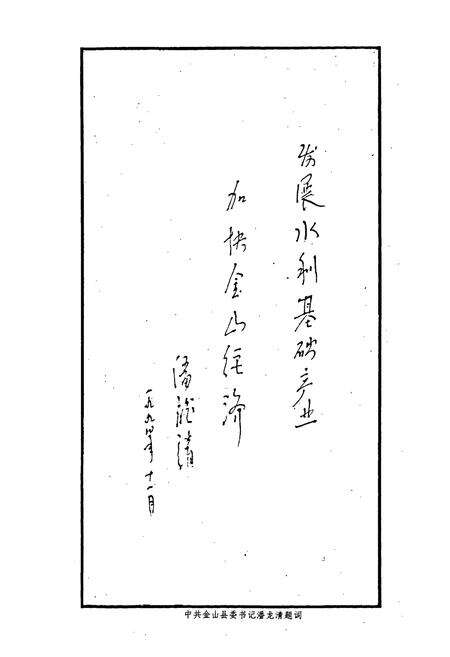 发展水利基础产业
加快金山经济
潘龙清
一九九四年十一月
中共金山县委书记潘龙清题词